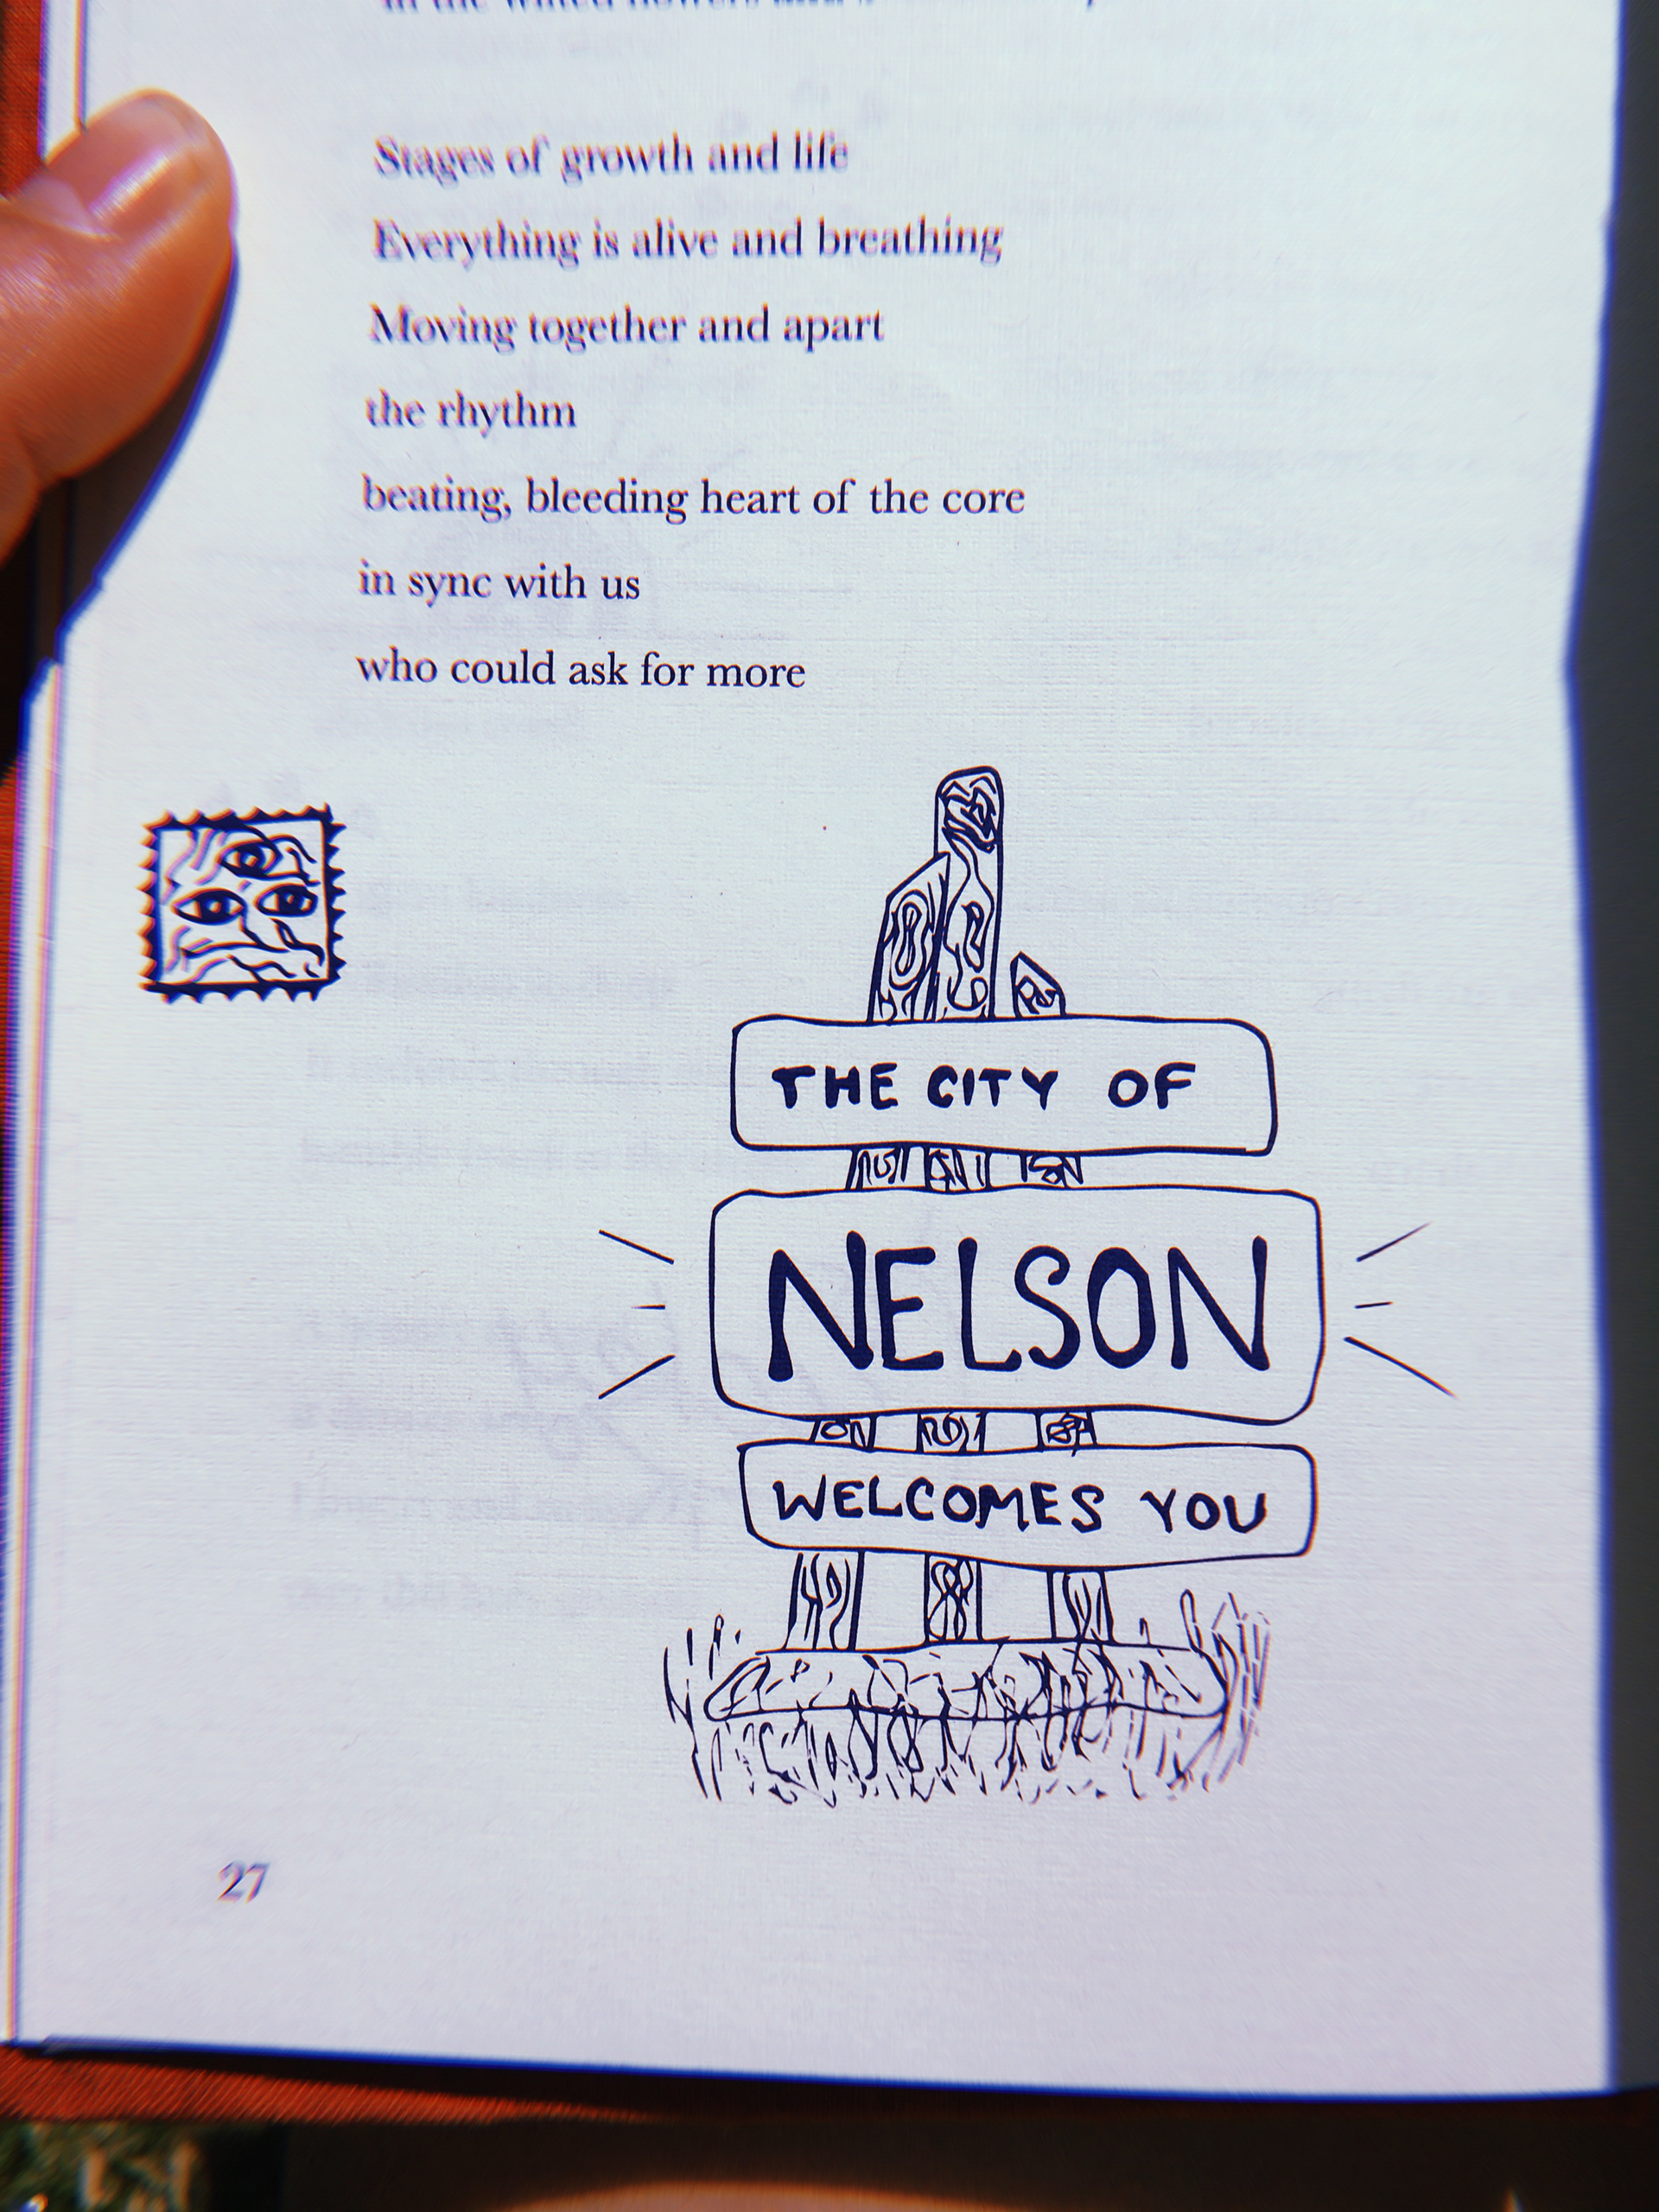 Stages of growth and life
Everything is alive and breathing
Moving together and apart
the rhythm
beating, bleeding heart of the core
in sync with us
who could ask for more
THE CITY OF
NELSON
WELCOMES YOU
27